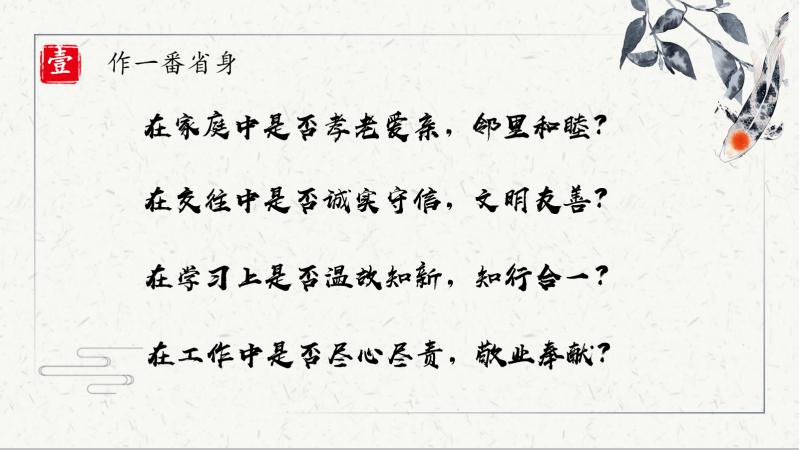 壹
作一番省身
在家庭中是否孝老爱亲，邻里和睦？
在交往中是否诚实守信，文明友善？
在学习上是否温故知新，知行合一？
在工作中是否尽心尽责，敬业奉献？